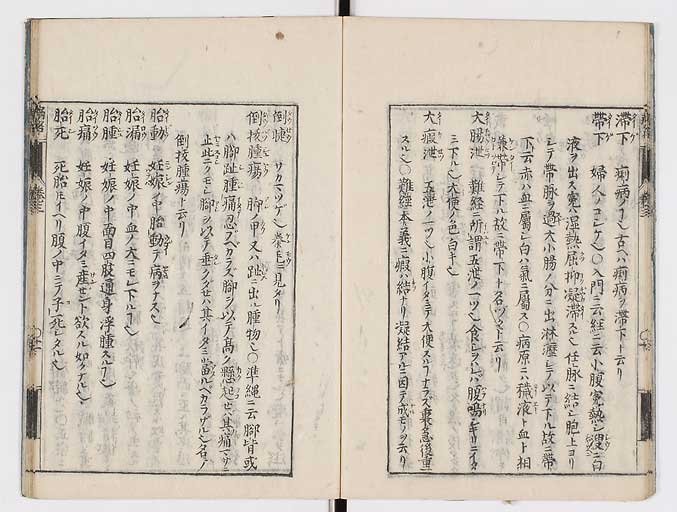 滞下 痢病ノコ也古ヘハ痢病ヲ滞下ト云リ
帯下 婦人ノコシケ也○入門ニ云経ニ云小腹寃熱シ溲ニ白
液ヲ出ス寃ハ湿熱屈抑凝滞ス也任脉ニ結シ胞上ヨリ
シテ帯脉ヲ過大小腸ノ分ニ出淋瀝シテ以テ下ル故ニ帯
下云赤ハ血ニ属シ白ハ気ニ属ス○病原ニハ穢液ト血ト相
兼帯シテ下ハ故ニ帯下ト名ツクト云リ
大腸泄 難経ニ所謂五泄ノ一ツ也食シヲハレハ腹鳴キリニイタ
ミ下ル也大便ノ色白キ也
大瘕泄 五泄ノ一ツ也小腹イタミテ大便スルコナラス裏急後重
スル也○難経本義ニ瘕ハ結ナリ凝結アルニ因テ成モノヲ云リ
倒睫 サカマツゲ也巻毛ニ見タリ
倒核腫瘍 脚ノ甲又ハ趾ニ出ル腫物也○準縄ニ云脚背或
ハ脚趾腫痛忍ブベカラズ脚ヲ以テ高ク懸起セハ其痛マサニ
止此ニクモレ脚ヲ以テ垂クダセハ其イタミ當ルベカラザル也名ノ
倒核腫瘍ト云リ
胎動 妊娠ノ中胎動テ病ヲナス也
胎漏 妊娠ノ中血ノ大ニモレ下ルコ也
胎腫 妊娠ノ中面目四肢通身浮腫スルコ也
胎痛 妊娠ノ中腹イタミ産セント欲スル如クナル也
胎死 死胎トモイヘリ腹ノ中ニテ子ノ死シタル也